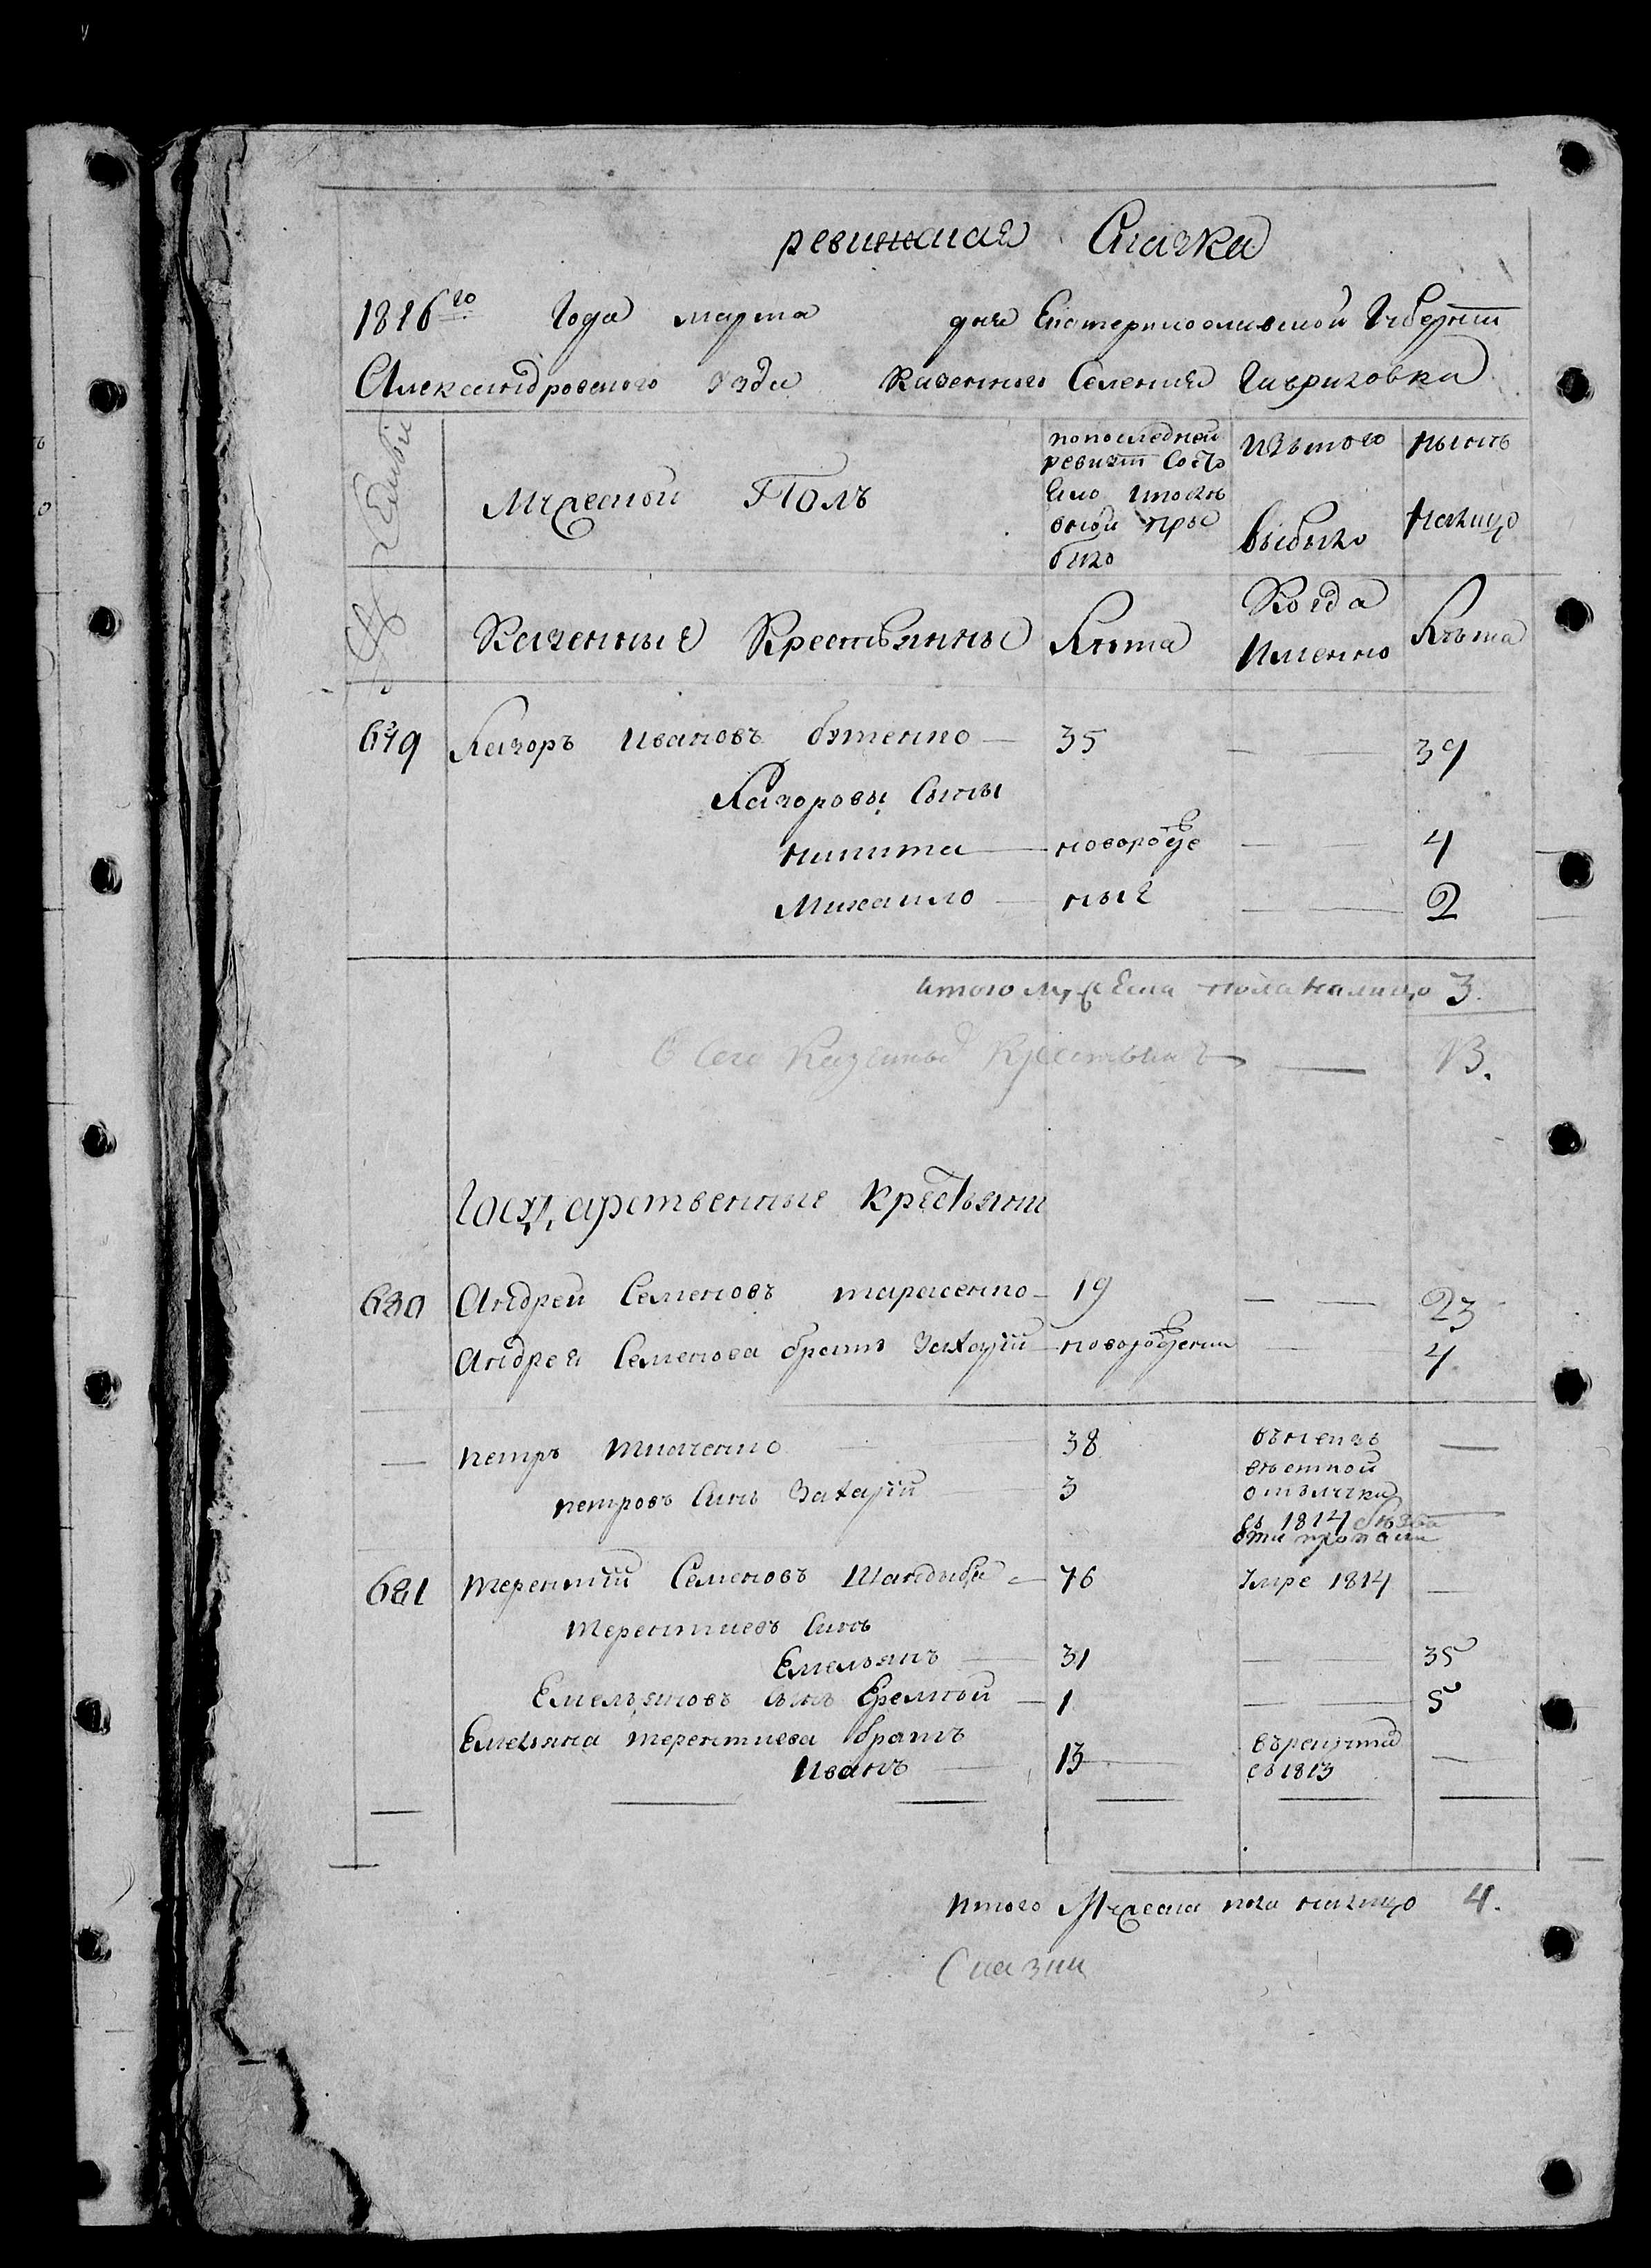 ревижская Скаска
1816го Года марта дня Екатеринославской Губернии
Александровского уезда казенного Селения Гавриловки
Семьи
Мужеской Полъ
попоследней ревизии Состо
яло и после
оной при
было
Изътого
выбыло
Нынъ
Налицо
Казенные Крестьянны
Лѣта
Когда
Именно
Лѣта
Лазоръ Ивановъ 35 — 39
Лазоровы Сыны
Никита — новорожде — 4
Михаило — ные — 2
итого мужеска пола налицо 3.
Всего Казенныхъ Крестьянъ —
Государственные крестьяни
630 Андрей Семеновъ тарасенко — 19 — 23
Андрея Семенова братъ Захарій — новорожденни — 4
— петръ ткаченко 38 —
петровъ Синъ Захарій 3 —
въ 1814
631 терентий Семеновъ Шандыба — 76 умре 1814 —
терентиевъ Синъ
Емельянъ — 31 — 35
Емельяновъ Сынъ Еремѣй — 1 — 5
Емельяна терентиева братъ
Иванъ — 13 въ рекруты
въ 1813 —
итого Мужеска пола налицо 4.
Сказки